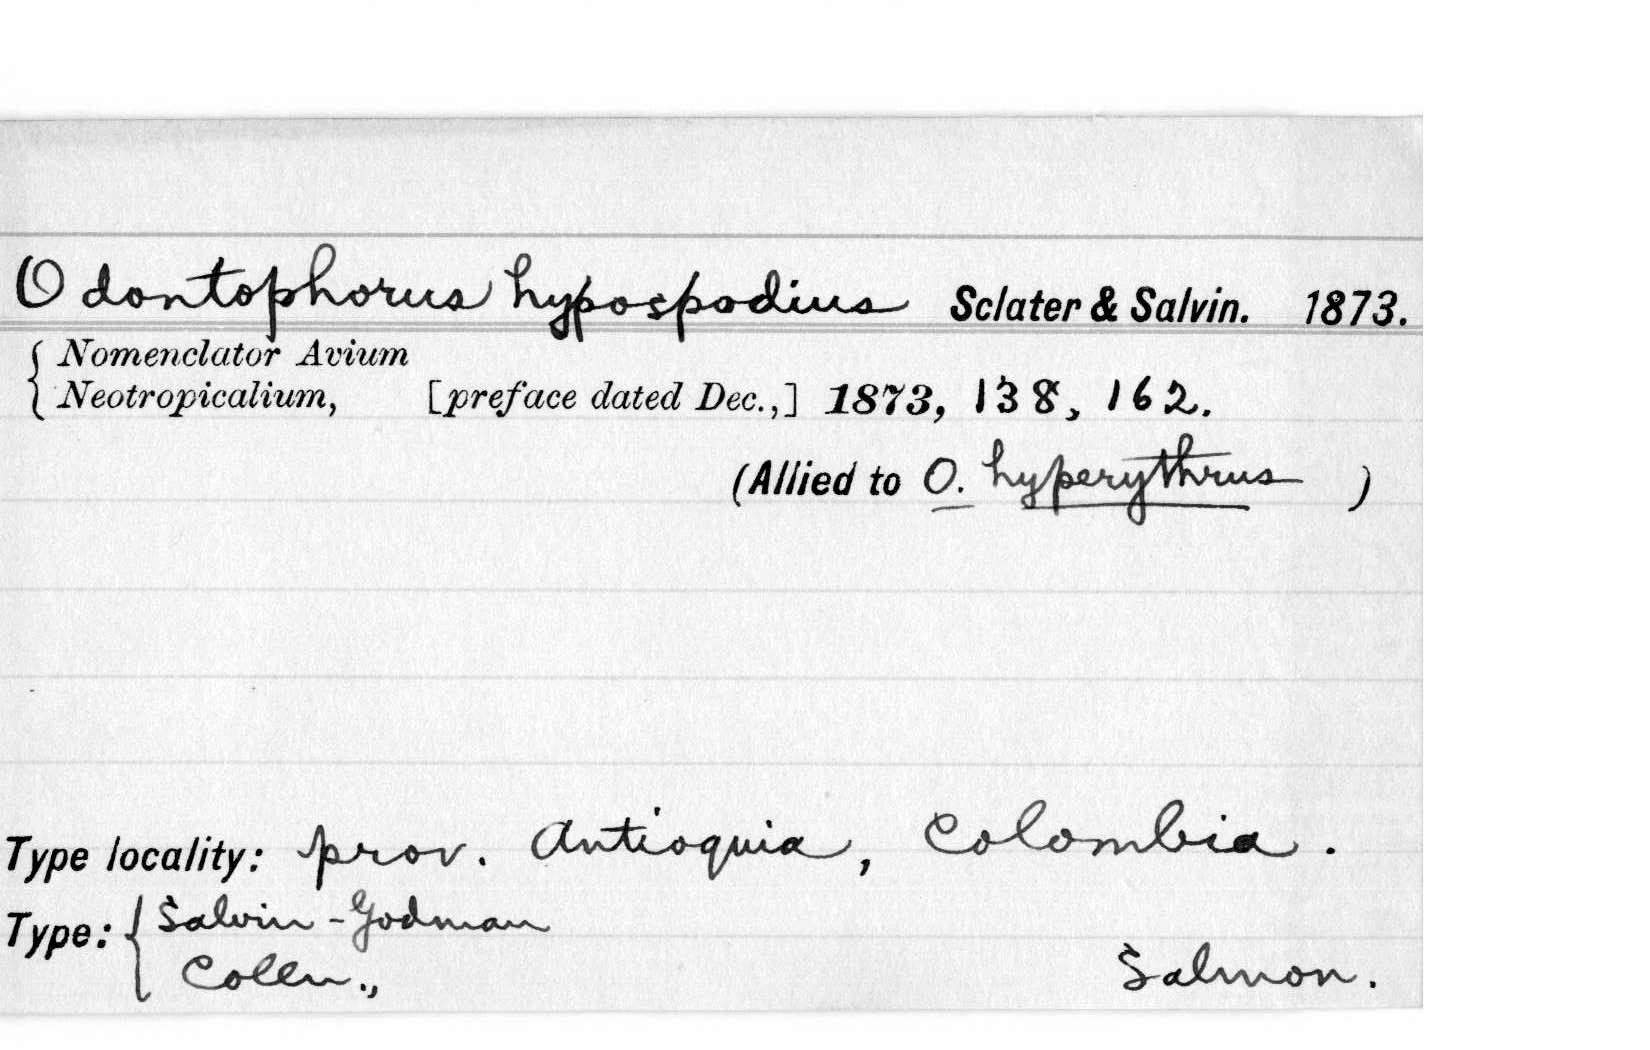 Odontophorus hypospodius Sclater & Salvin. 1873.
{ Nomenclator Avium
Neotropicalium, [preface dated Dec.,] 1873, 138, 162.
(Allied to O. hyperythrus )
Type locality: prov. Antioquia, Colombia.
Type: { Salvin-Godman
Colln., Salmon.